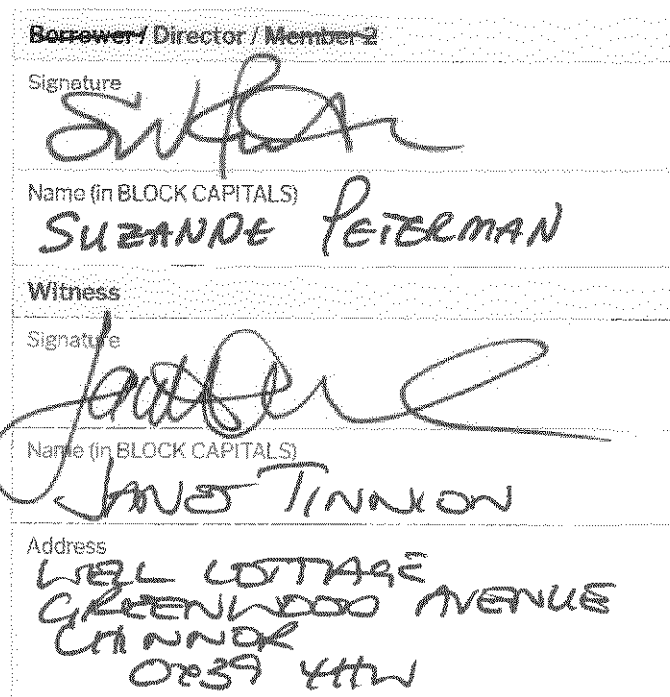 Borrower / Director / Member 2
Signature
Name (in BLOCK CAPITALS)
SUZANNE PETERMAN
Witness
Signature
Name (in BLOCK CAPITALS)
JANET TINNION
Address
WELL COTTAGE
GREENWOOD AVENUE
CHINNOR
OX39 4HW